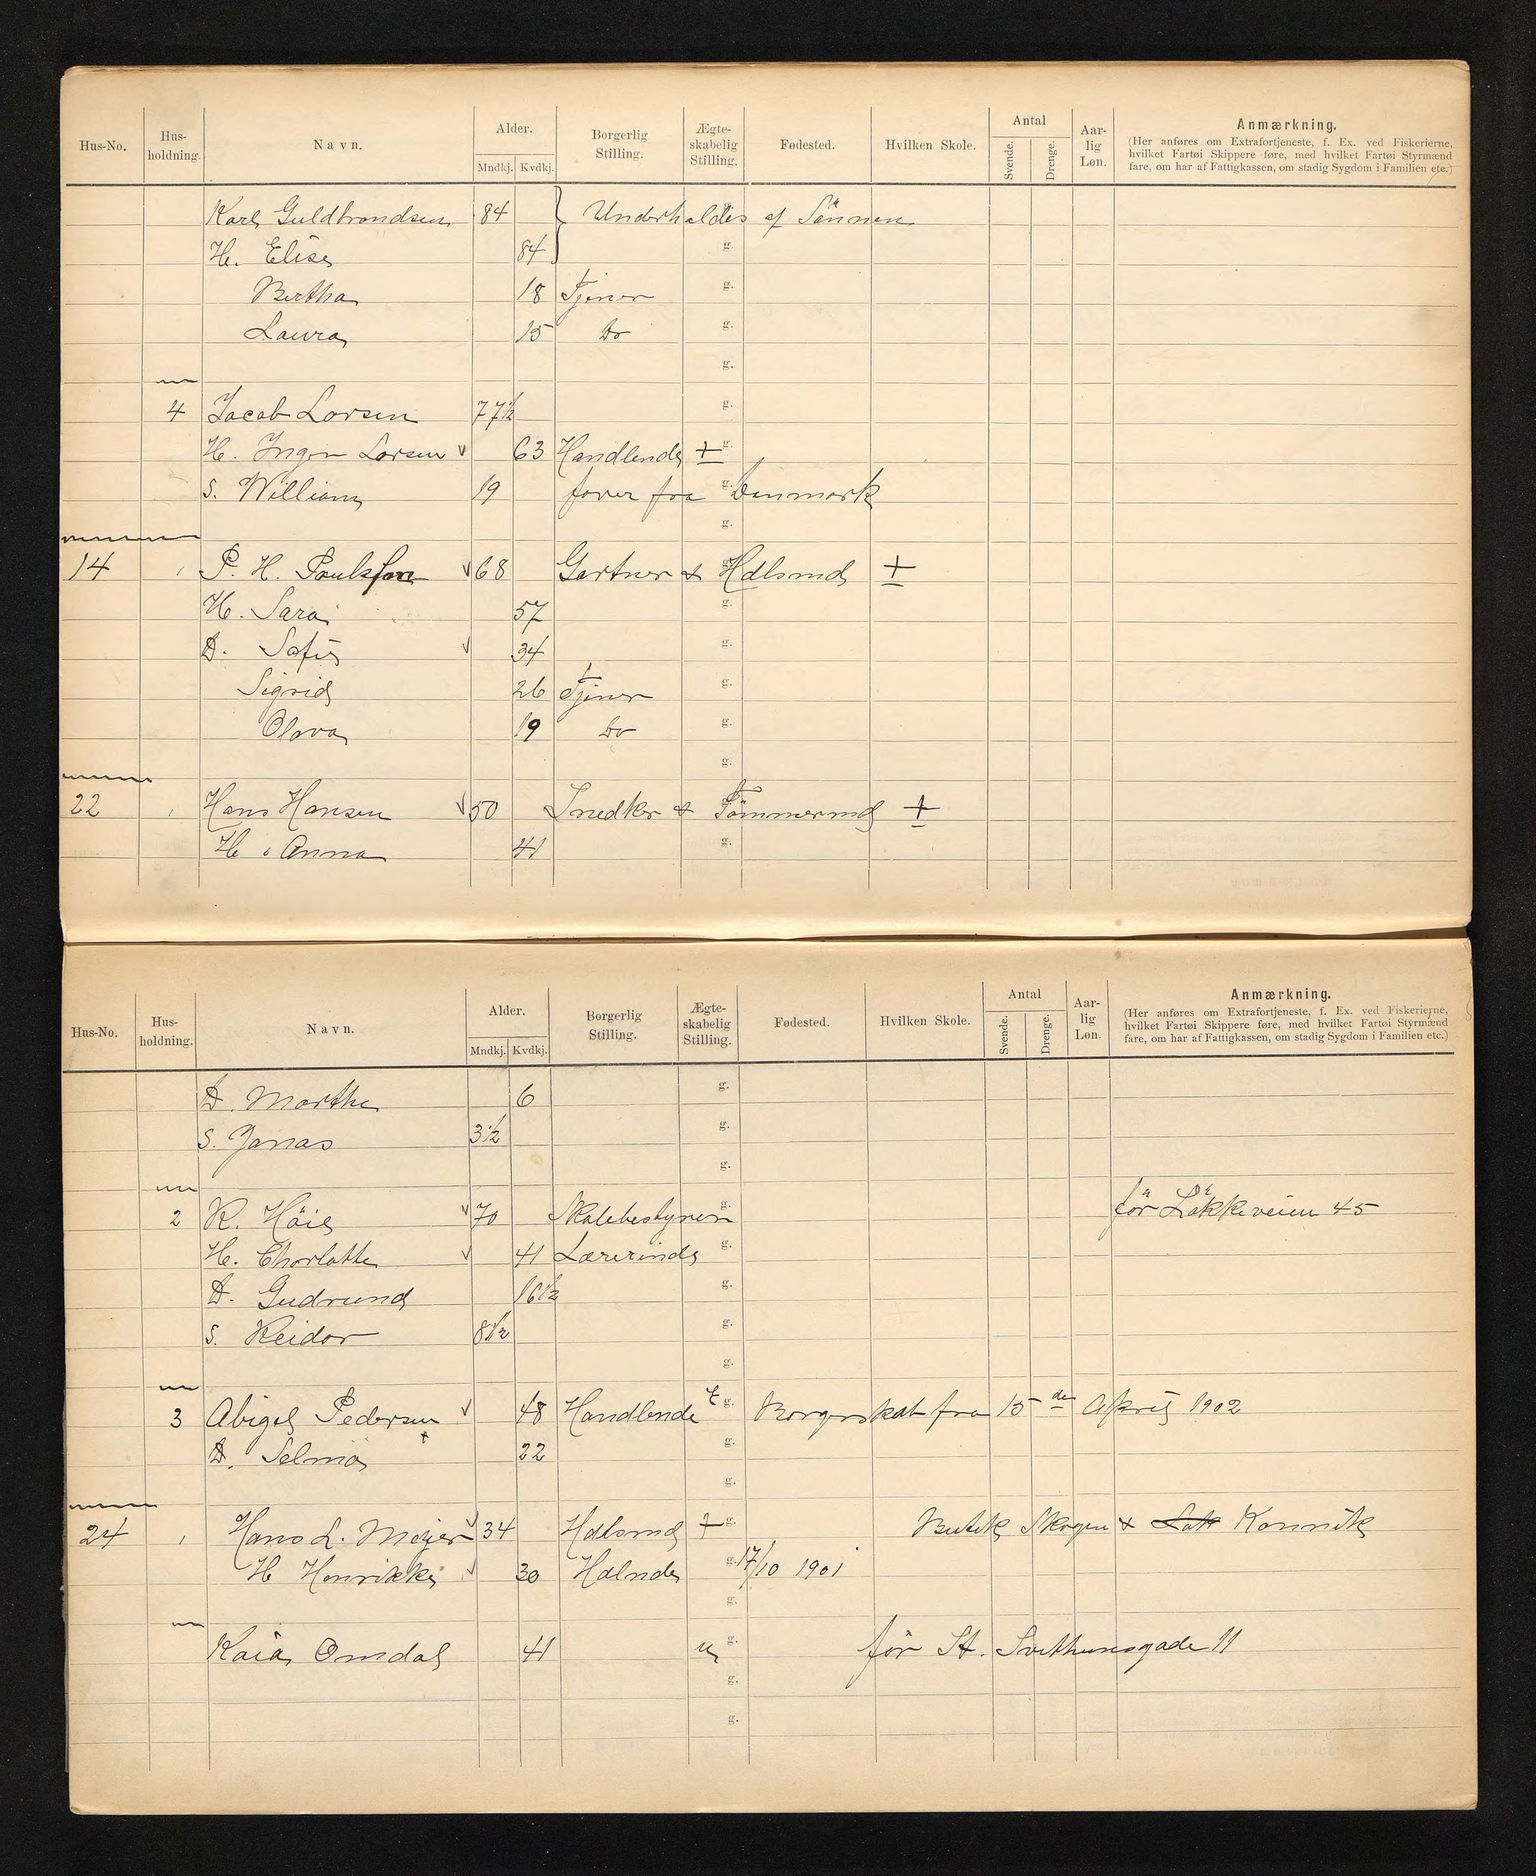 Hus-No. Hus-holdning. Navn. Alder. Mndkj. Kvdkj. Borgerlig Stilling. Ægte-skabelig Stilling. Fødested. Hvilken Skole. Antal Svende. Drenge. Aar-lig Løn. Anmærkning.
(Her anføres om Extrafortjeneste, f. Ex. ved Fiskerierne,
hvilket Fartøi Skippere føre, med hvilket Fartøi Styrmænd
fare, om har af Fattigkassen, om stadig Sygdom i Familien etc.)
Karl Guldbrandsen 84 Underholdes af Sönnen
H. Elise 84 g.
Bertha 18 Tjener g.
Laura 15 Do g.
g.
4 Jacob Larsen 77½ g.
H. Inger Larsen 63 Handlende + g.
S. William 19 farer fra Danmark g.
g.
14 P. H. Paulsen 68 Gartner & Hdlsmd +
H. Sara 57 g.
D. Sofie 34 g.
Sigrid 26 Tjener g.
Olava 19 Do g.
g.
22 Hans Hansen 50 Snedker & Tömmermd +
H. Anna 41 g.
Hus-No. Hus-holdning. Navn. Alder. Mndkj. Kvdkj. Borgerlig Stilling. Ægte-skabelig Stilling. Fødested. Hvilken Skole. Antal Svende. Drenge. Aar-lig Løn. Anmærkning.
(Her anføres om Extrafortjeneste, f. Ex. ved Fiskerierne,
hvilket Fartøi Skippere føre, med hvilket Fartøi Styrmænd
fare, om har af Fattigkassen, om stadig Sygdom i Familien etc.)
D. Marthe 6 g.
S. Jonas 3½ g.
g.
2 K. Höie 70 Skolebestyrer g. för Lökkeveien 45
H. Charlotte 41 Lærerinde g.
D. Gudrund 16½ g.
S. Reidar 8½ g.
g.
3 Abigel Pedersen 48 Handlende g. Borgerskab fra 15de April 1902
D. Selma 22 g.
g.
24 Hans L. Meyer 34 Hdlsmd + g. Butik Skagen &  Kannik
H Henrikke 30 Hdlnde g. 17/10 1901
g.
Kaia Omdal 41 u g. för St. Svithunsgade 11
g.
g.